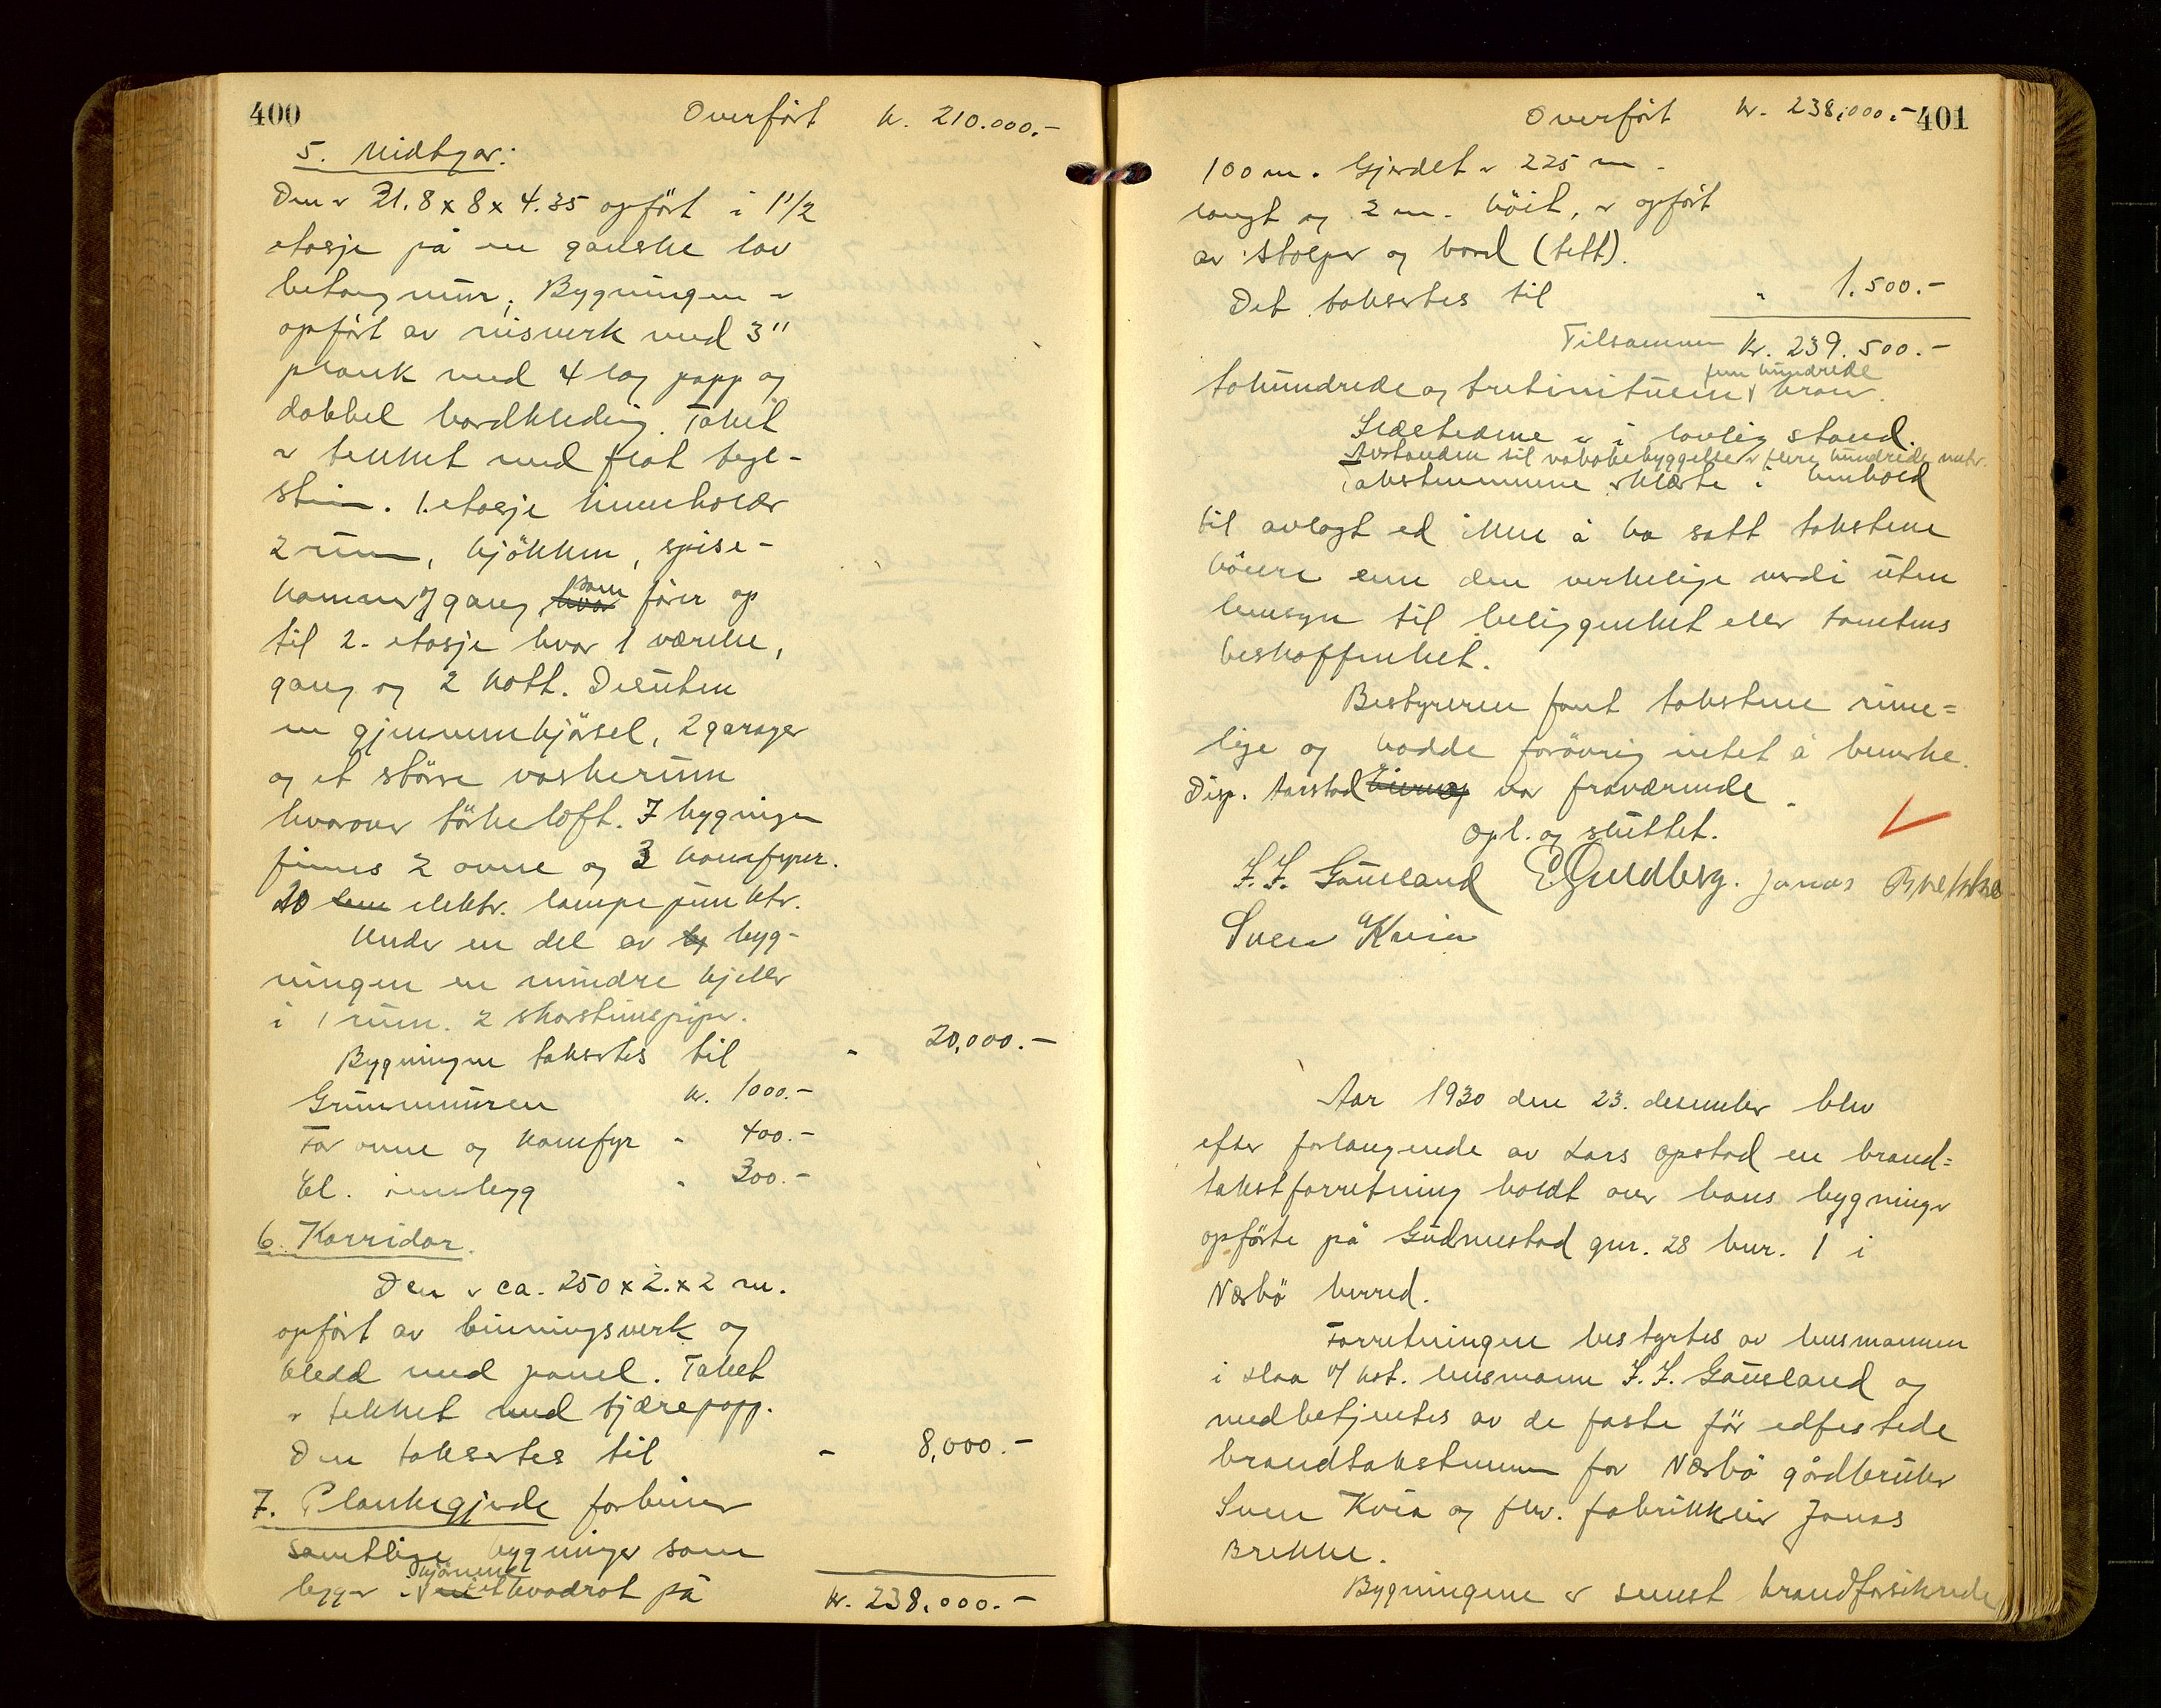 400
Overført kr. 210.000.-
5. Midtgar:
Den er 21.8 x 8 x 4.35 opført i 1 1/2
etasje på en ganske lav
betongmur; Bygningen er
opført av reisverk med 3"
plank med 4 lag papp og
dobbel bordkleding. Taket
er tekket med flat tegl-
stein. 1. etasje inneholder
2 rum, kjøkken, spise-
kammer og gang som fører op
til 2. etasje hvor 1 værelse,
gang og 2 kott. Desuten
en gjennemkjørsel, 2 garager
og et større vaskerum
hvorover tørkeloft. I bygningen
finnes 2 ovne og 3 komfyrer.
20 elektr. lampepunkter.
Under en del av byg-
ningen en mindre kjeller
i 1 rum. 2 skorstenspiper.
Bygningen takseres til " 20,000.-
Grunnmuren kr. 1000.-
For ovne og komfyr " 400.-
El. innlegg " 300.-
6. Korridor.
Den er ca. 250 x 2. x 2 m.
opført av binningsverk og
kledd med panel. Taket
er tekket med tjærepapp.
Den takseres til " 8,000.-
7. Plankegjerde forbiner
samtlige bygninger som
ligger i et kvadrat på
kr. 238.000.-
401
Overført kr. 238,000.-
100 m. Gjerdet er 225 m
langt og 2 m. høit, er opført
av stolper og bord (tett).
Det takseres til " 1.500.-
Tilsammen kr. 239.500.-
fem hundrede
tohundrede og trettinitusen kroner.
Ildstedene er i lovlig stand.
Avstanden til nabobebyggelse er flere hundrede meter.
Takstmennene erklærte i henhold
til avlagt ed ikke å ha satt takstene
høiere enn den virkelige verdi uten
hensyn til beliggenhet eller tomtens
beskaffenhet.
Bestyreren fant takstene rime=
lige og hadde forøvrig intet å bemerke.
Disp. Aarstad var fraværende.
Opl. og sluttet.
J. J. Gausland E Gundberg. Jonas Brekke
Sven Kvia
Aar 1930 den 23. desember blev
efter forlangende av Lars Opstad en brand=
takstforretning holdt over hans bygninger
opførte på Gudmestad gnr. 28 bnr. 1 i
Nærbø herred.
Forretningen bestyrtes av lensmannen
i Haa v/ kst. lensmann J. J. Gausland og
medbetjentes av de faste før edfestede
brandtakstmenn for Nærbø gårdbruker
Sven Kvia og fhv. fabrikkeier Jonas
Brekke.
Bygningene er senest brandforsikrede